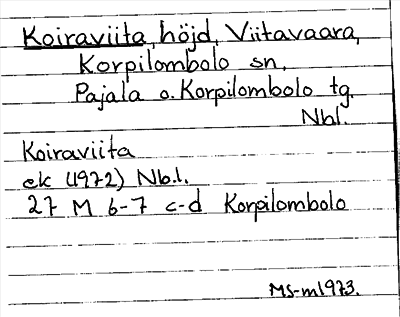 Koiraviita, höjd, Viitavaara,
Korpilombolo sn,
Pajala o. Korpilombolo tg.
Nbl.
Koiraviita
ek (1972) Nb.l.
27 M 6-7 c-d Korpilombolo
MS-m1973.